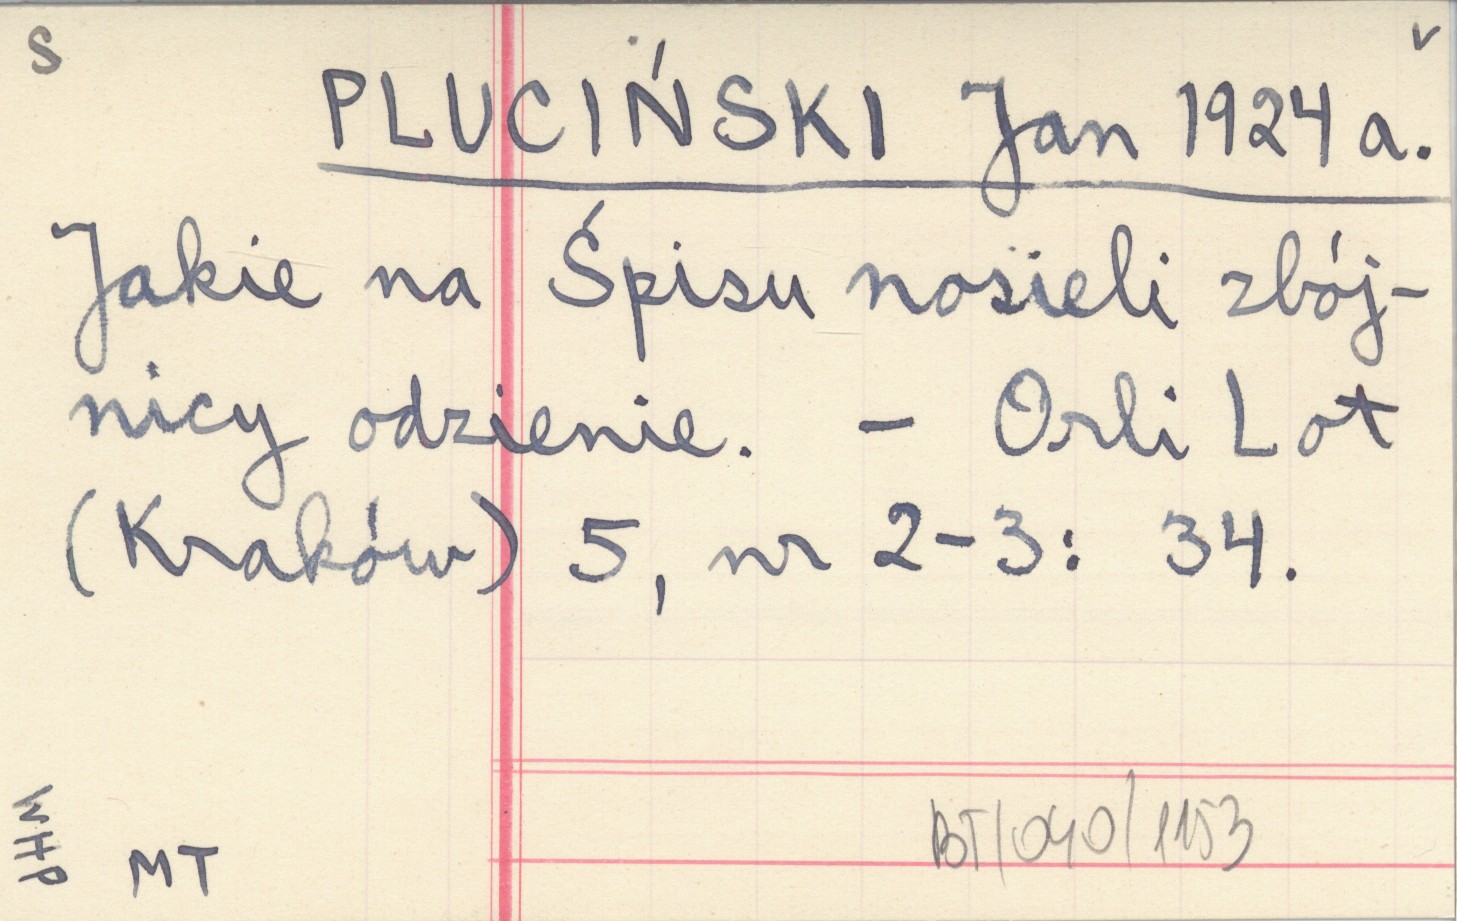 S
v
PLUCIŃSKI Jan 1924 a.
Jakie na Śpisu nosieli zbój-
nicy odzienie. - Orli Lot
(Kraków) 5, nr 2-3: 34.
WHP
MT
BT/040/1153